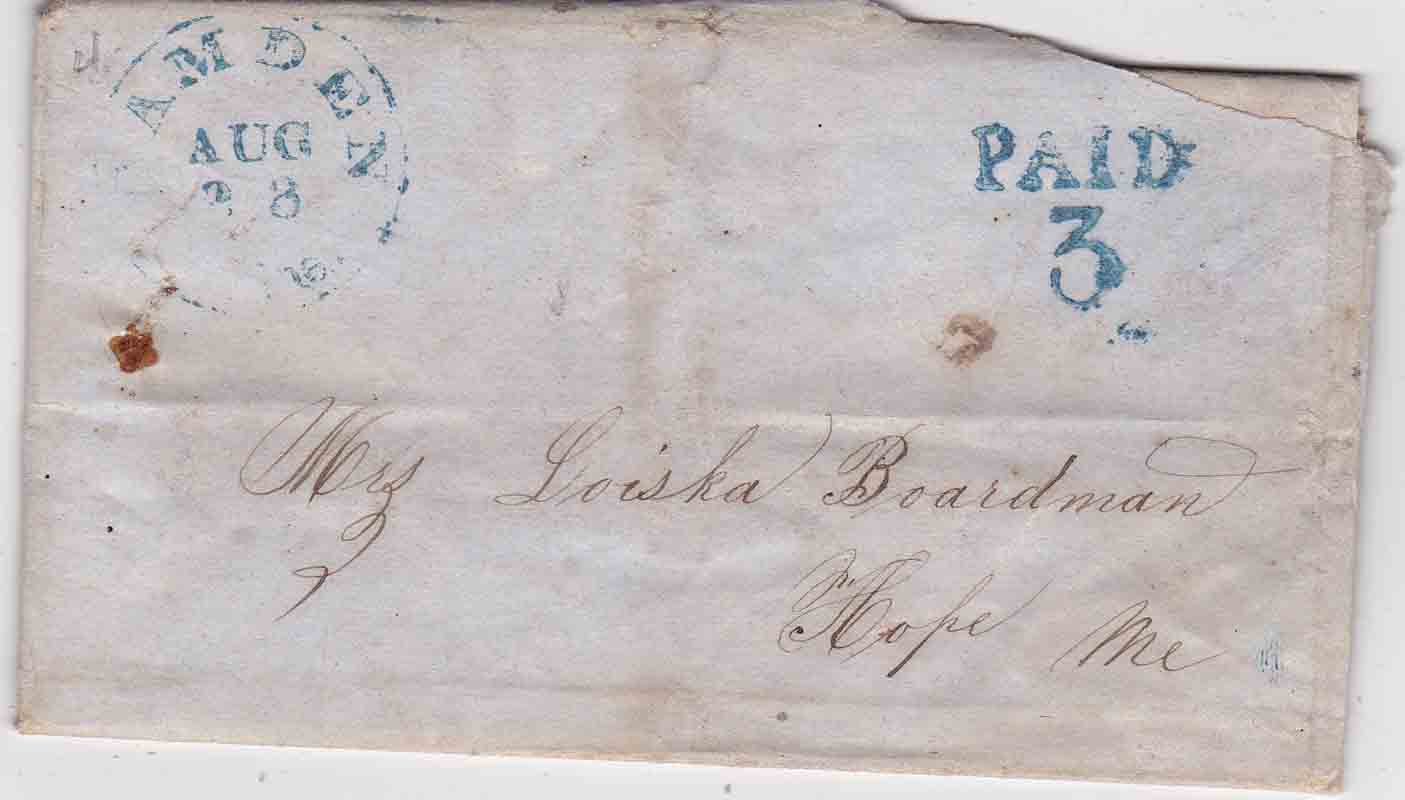 AMDEN
AUG
28
PAID
3
Mrs Loiska Boardman
Hope Me